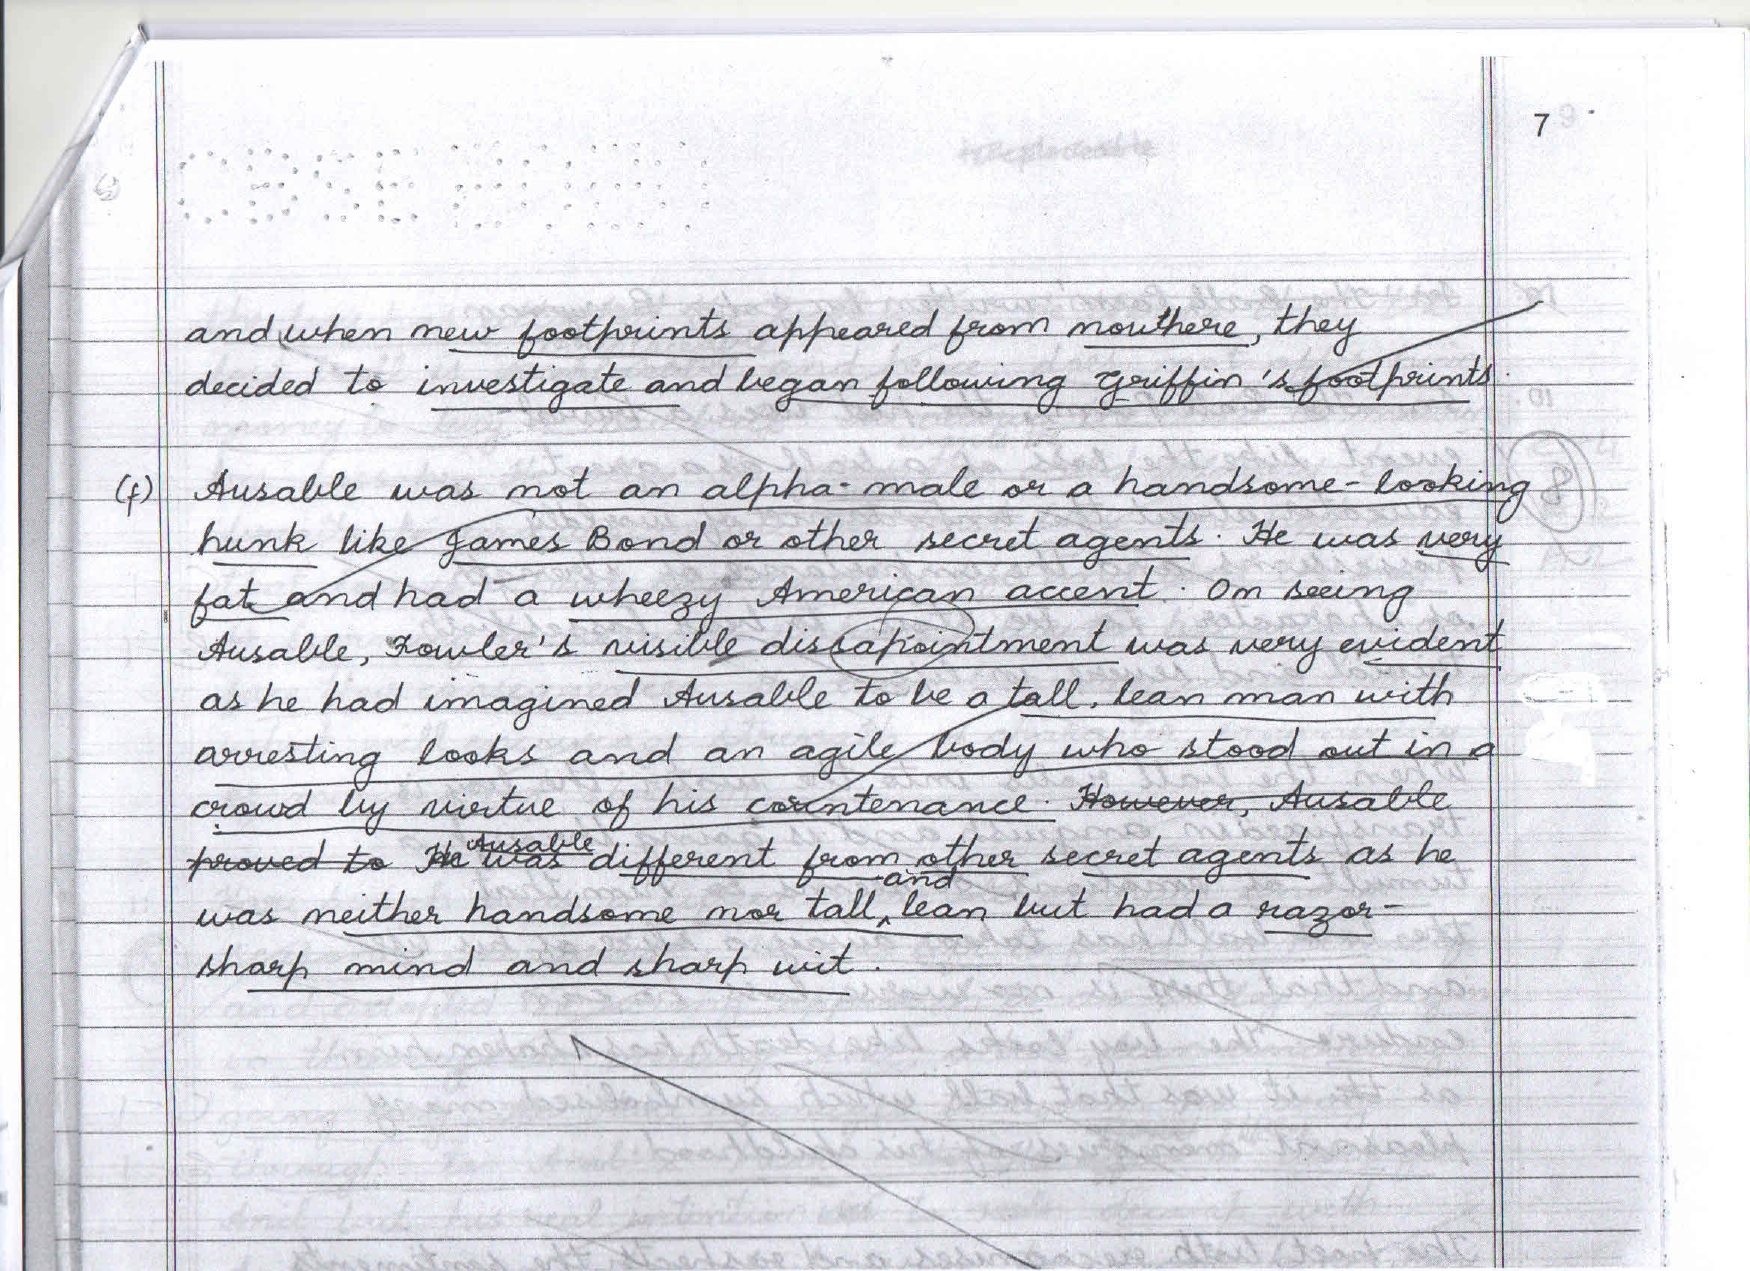 7
and when new footprints appeared from nowhere, they
decided to investigate and began following Griffin's footprints.
(f) Ausable was not an alpha-male or a handsome-looking
hunk like James Bond or other secret agents. He was very
fat and had a wheezy American accent. On seeing
Ausable, Fowler's visible dissapointment was very evident
as he had imagined Ausable to be a tall, lean man with
arresting looks and an agile body who stood out in a
crowd by virtue of his countenance. However, Ausable
proved to He Ausable was different from other secret agents as he
was neither handsome nor tall and lean but had a razor-
sharp mind and sharp wit.